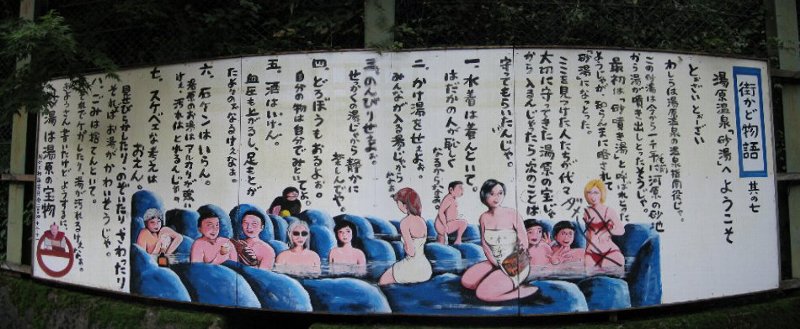 街かど物語 其の七
湯原温泉「砂湯」へようこそ
とぉざい とぉざい
わしらは湯原温泉の
この砂湯は今から一千年も前に河原の砂地
から湯が噴き出しとったそうじゃ。
最初は「砂噴き湯」と呼ばれとった
ようじゃが、知らんまに略されて
「砂湯」になったらしい。
ここを見つけた人たちが代々
大切に守ってきた湯原の宝じゃ
から、入るもんじゃったら次のことは
守ってもらいたいんじゃ。
一、水着は着んといて。
はだかの人が恥しく
なるからなぁ。
二、かけ湯をせぇよ。
みんなが入る湯じゃから
なぁ。
三、のんびりせぇよぉ。
せっかくの湯じゃから静かに
楽しんでや。
四、どろぼうもおるよぉ。
自分の物は自分でみとってよ。
五、酒はいけん。
血圧も上がるし、足もとが
たよりのぉなるけぇなぁ。
六、石ケンはいらん。
湯原のお湯はアルカリが強い
けぇ、汚れはとれるんじゃ。
七、スケベェな考えは
おえん。
見せびらかしたり、のぞいたり、さわったり
それはお湯がかわいそうじゃ。
八、ごみは捨てんといて。
砂湯は湯原の宝物